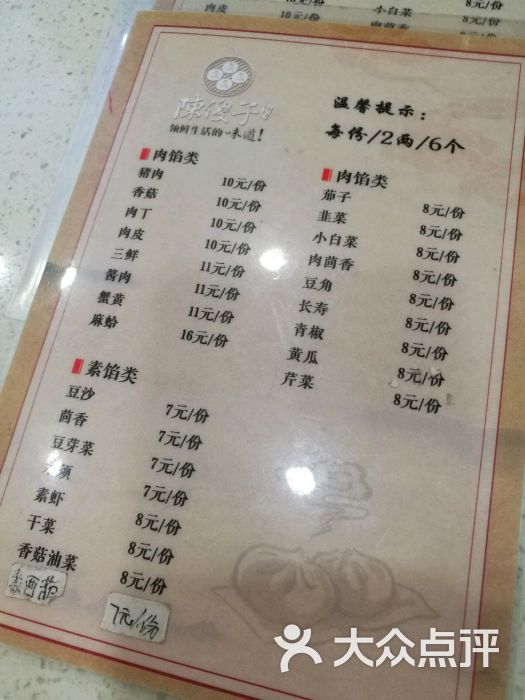 肉皮 10元/份
小白菜 8元/份
8元/份
陳傻子
领鲜生活的味道！
温馨提示：
每份/2两/6个
肉馅类
猪肉 10元/份
香菇 10元/份
肉丁 10元/份
肉皮 10元/份
三鲜 11元/份
酱肉 11元/份
蟹黄 11元/份
麻蛤 16元/份
肉馅类
茄子 8元/份
韭菜 8元/份
小白菜 8元/份
肉茴香 8元/份
豆角 8元/份
长寿 8元/份
青椒 8元/份
黄瓜 8元/份
芹菜 8元/份
素馅类
豆沙 7元/份
茴香 7元/份
豆芽菜 7元/份
7元/份
素虾 8元/份
干菜 8元/份
香菇油菜 8元/份
7元/份
大众点评